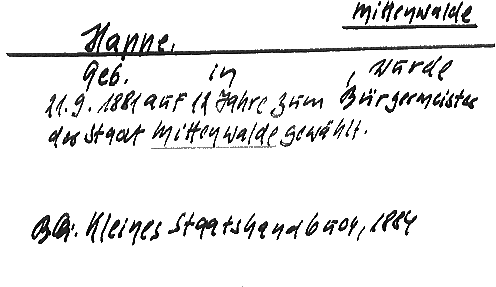 Mittenwalde
Hanne.
Geb. in , wurde
21.9.1881 auf 12 Jahre zum Bürgermeister
der Stadt Mittenwalde gewählt.
Kleines Staatshandbuch, 1884